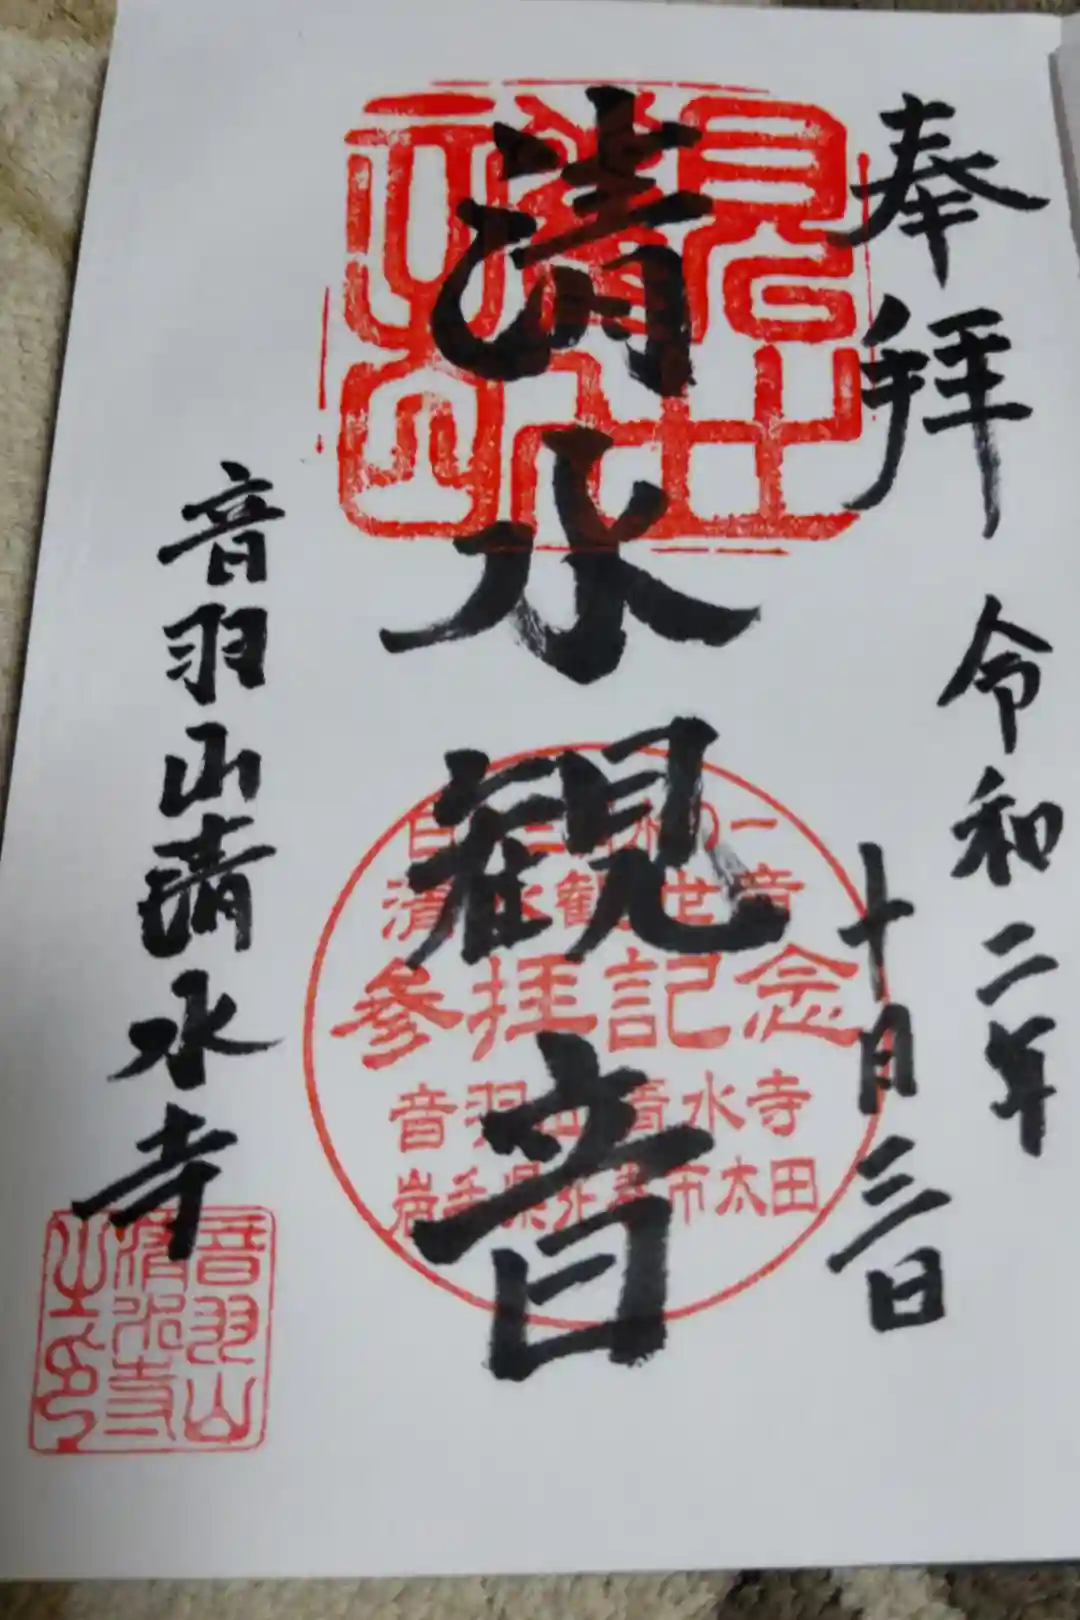 奉拝
令和二年
十月三日
清水観音
音羽山清水寺
清水観世音
参拝記念
音羽山清水寺
岩手県花巻市太田
音羽山
清水寺
之印